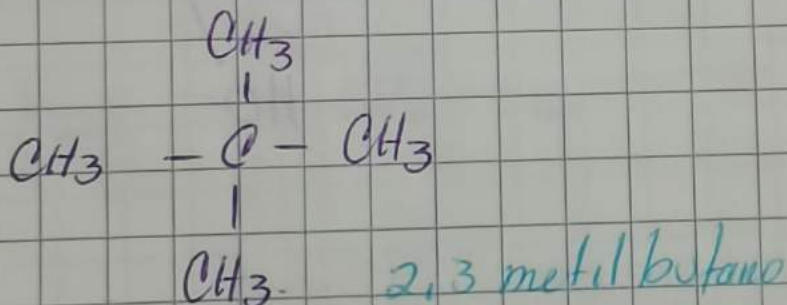 CH3
|
CH3 - C - CH3
|
CH3. 2,3 metil butano